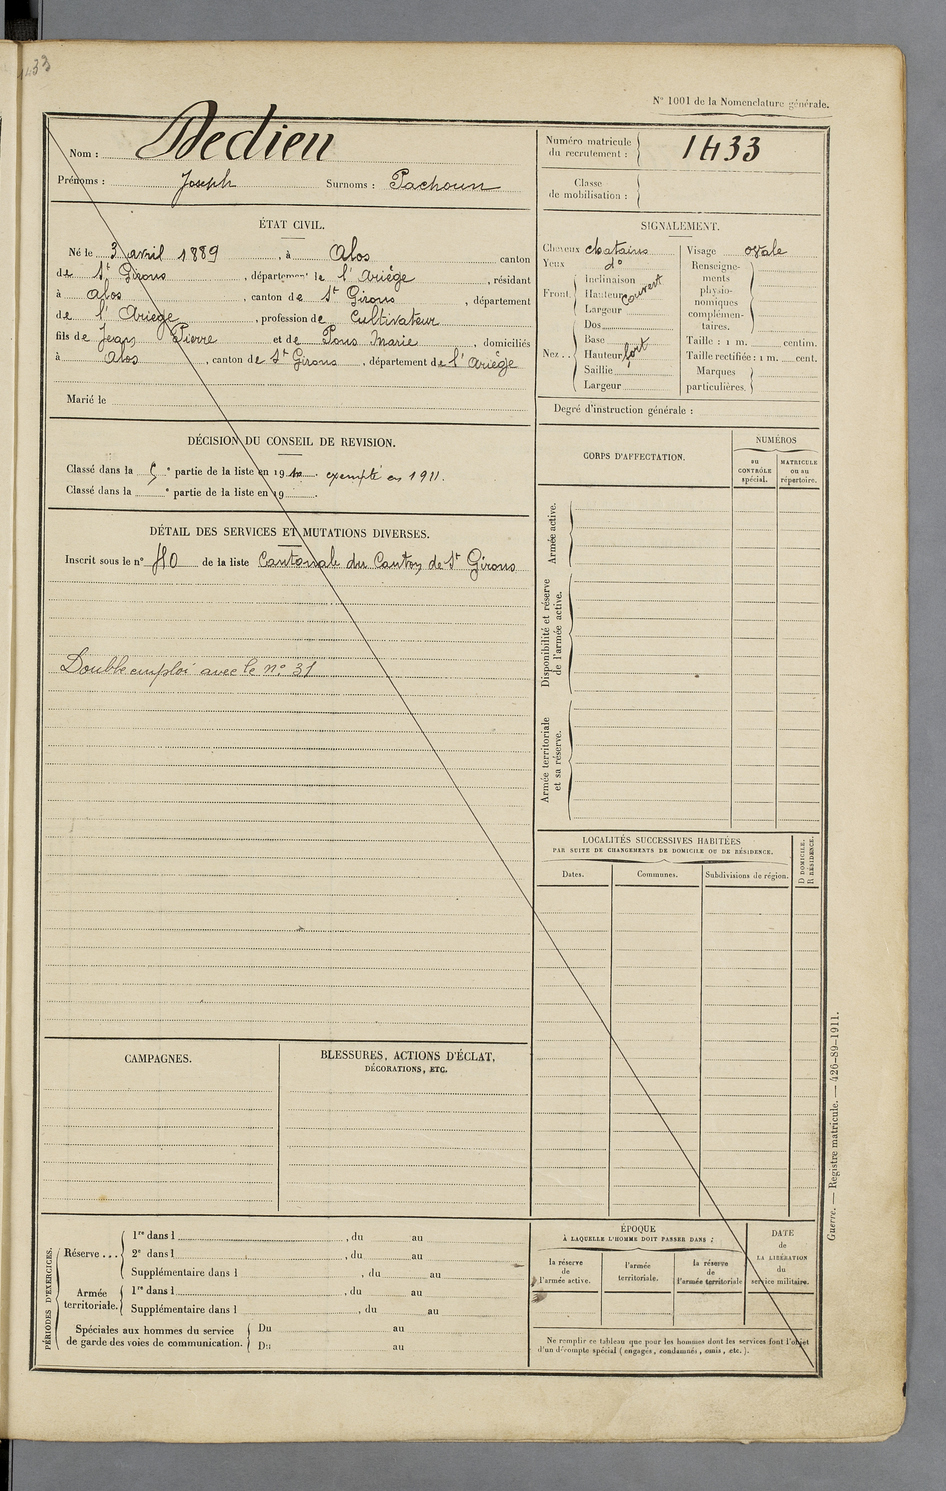 1433
N° 1001 de la Nomenclature générale.
Nom : Dedieu
Prénoms : Joseph Surnoms : Pachoun
Numéro matricule du recrutement : 1433
Classe de mobilisation :
ÉTAT CIVIL.
Né le 3 avril 1889, à Alos canton
de St Girons, département de l'Ariège, résidant
à Alos, canton de St Girons, département
de l'Ariège, profession de Cultivateur
fils de Jean Pierre et de Pons Marie, domiciliés
à Alos, canton de St Girons, département de l'Ariège
Marié le
SIGNALEMENT.
Cheveux chatains
Yeux do
Front. Inclinaison
Hauteur couvert
Largeur
Nez.. Dos
Base
Hauteur fort
Saillie
Largeur
Visage ovale
Renseigne-
ments
physio-
nomiques
complémen-
taires.
Taille : 1 m. centim.
Taille rectifiée : 1 m. cent.
Marques
particulières.
Degré d'instruction générale :
DÉCISION DU CONSEIL DE REVISION.
Classé dans la 5e partie de la liste en 19 exempté en 1911.
Classé dans la e partie de la liste en 19 .
DÉTAIL DES SERVICES ET MUTATIONS DIVERSES.
Inscrit sous le n° 40 de la liste Cantonale du Canton de St Girons
Double emploi avec le n° 31
CORPS D'AFFECTATION.
NUMÉROS
au
CONTRÔLE
spécial.
MATRICULE
ou au
répertoire.
Armée active.
Disponibilité et réserve
de l'armée active.
Armée territoriale
et sa réserve.
LOCALITÉS SUCCESSIVES HABITÉES
PAR SUITE DE CHANGEMENTS DE DOMICILE OU DE RÉSIDENCE.
Dates.
Communes.
Subdivisions de région.
D DOMICILE.
R RÉSIDENCE.
CAMPAGNES.
BLESSURES, ACTIONS D'ÉCLAT,
DÉCORATIONS, ETC.
PÉRIODES D'EXERCICES.
Réserve ...
1re dans l , du au
2e dans l , du au
Supplémentaire dans l , du au
Armée
territoriale.
1re dans l , du au
Supplémentaire dans l , du au
Spéciales aux hommes du service
de garde des voies de communication.
Du au
Du au
ÉPOQUE
À LAQUELLE L'HOMME DOIT PASSER DANS :
la réserve
de
l'armée active.
l'armée
territoriale.
la réserve
de
l'armée territoriale
DATE
de
LA LIBÉRATION
du
service militaire.
Ne remplir ce tableau que pour les hommes dont les services font l'objet
d'un décompte spécial (engagés, condamnés, omis, etc.).
Guerre. — Registre matricule. — 426-89-1911.